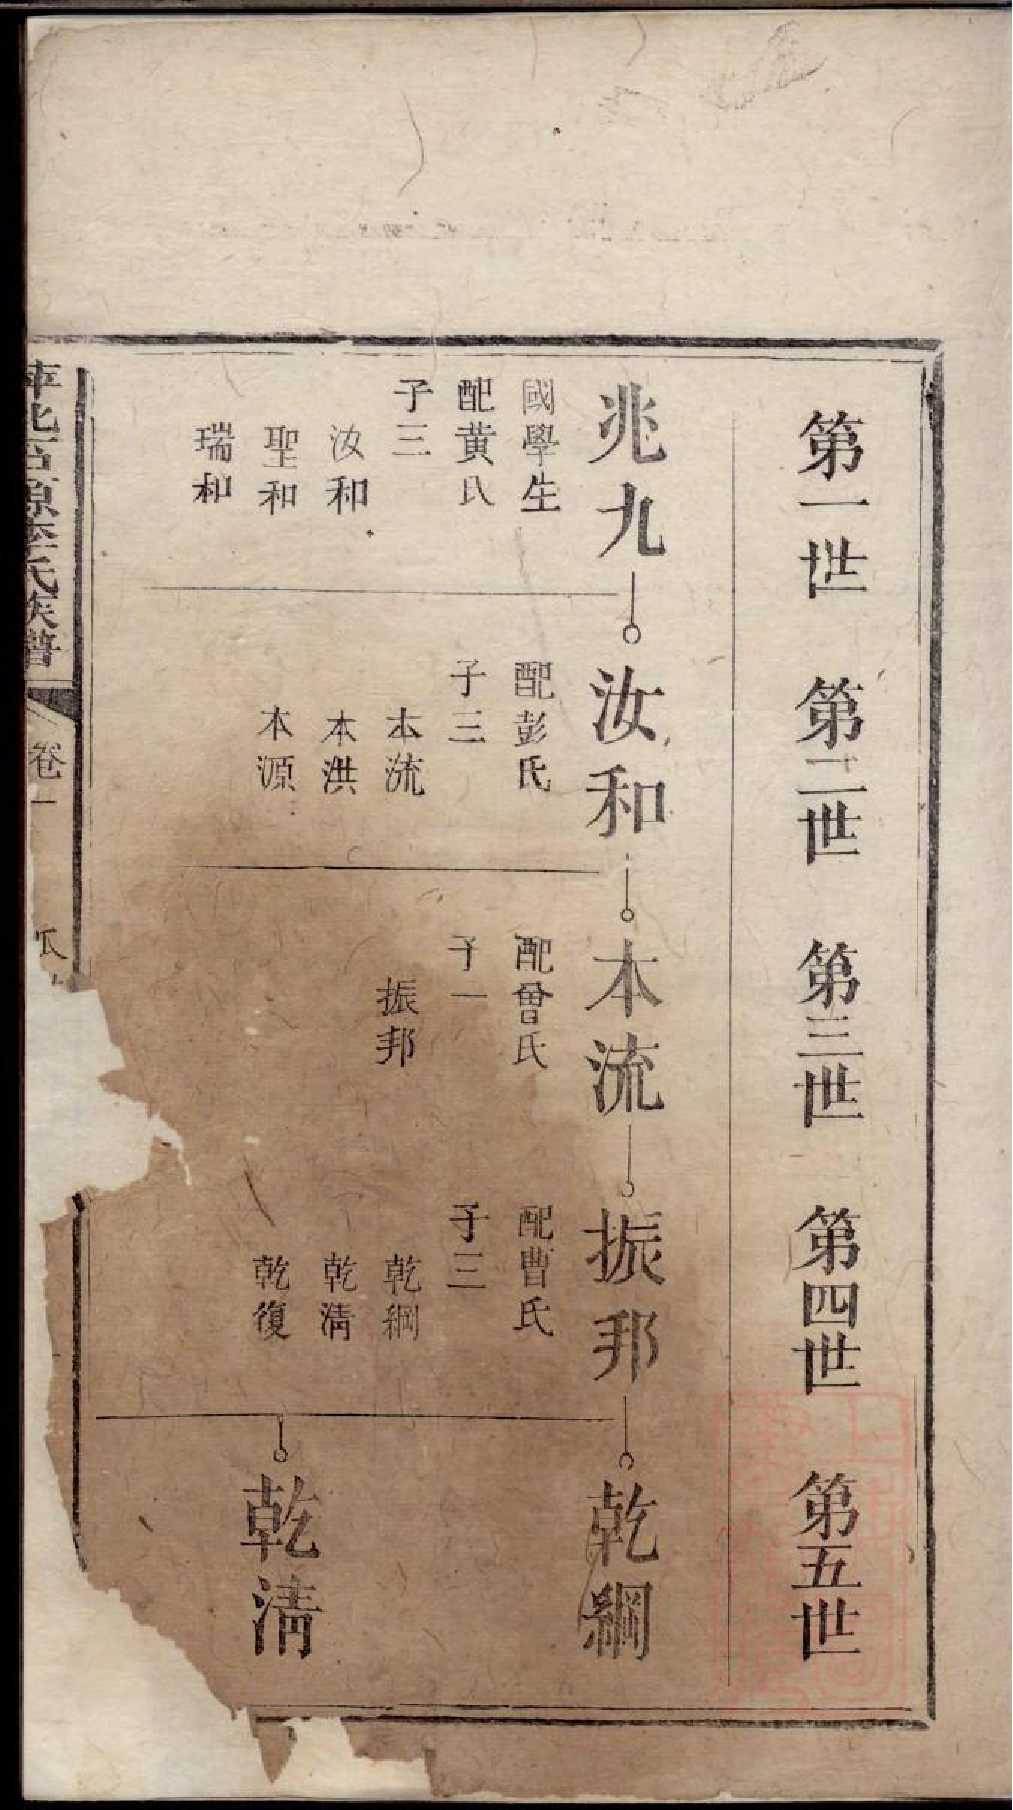 第一世 第二世 第三世 第四世 第五世
兆九 汝和 本流 振邦 乾綱
國學生
配黄氏
子三
汝和
聖和
瑞和
配彭氏
子三
本流
本洪
本源
配曾氏
子一
振邦
配曹氏
子三
乾綱
乾淸
乾復
乾淸
李氏族譜
卷一